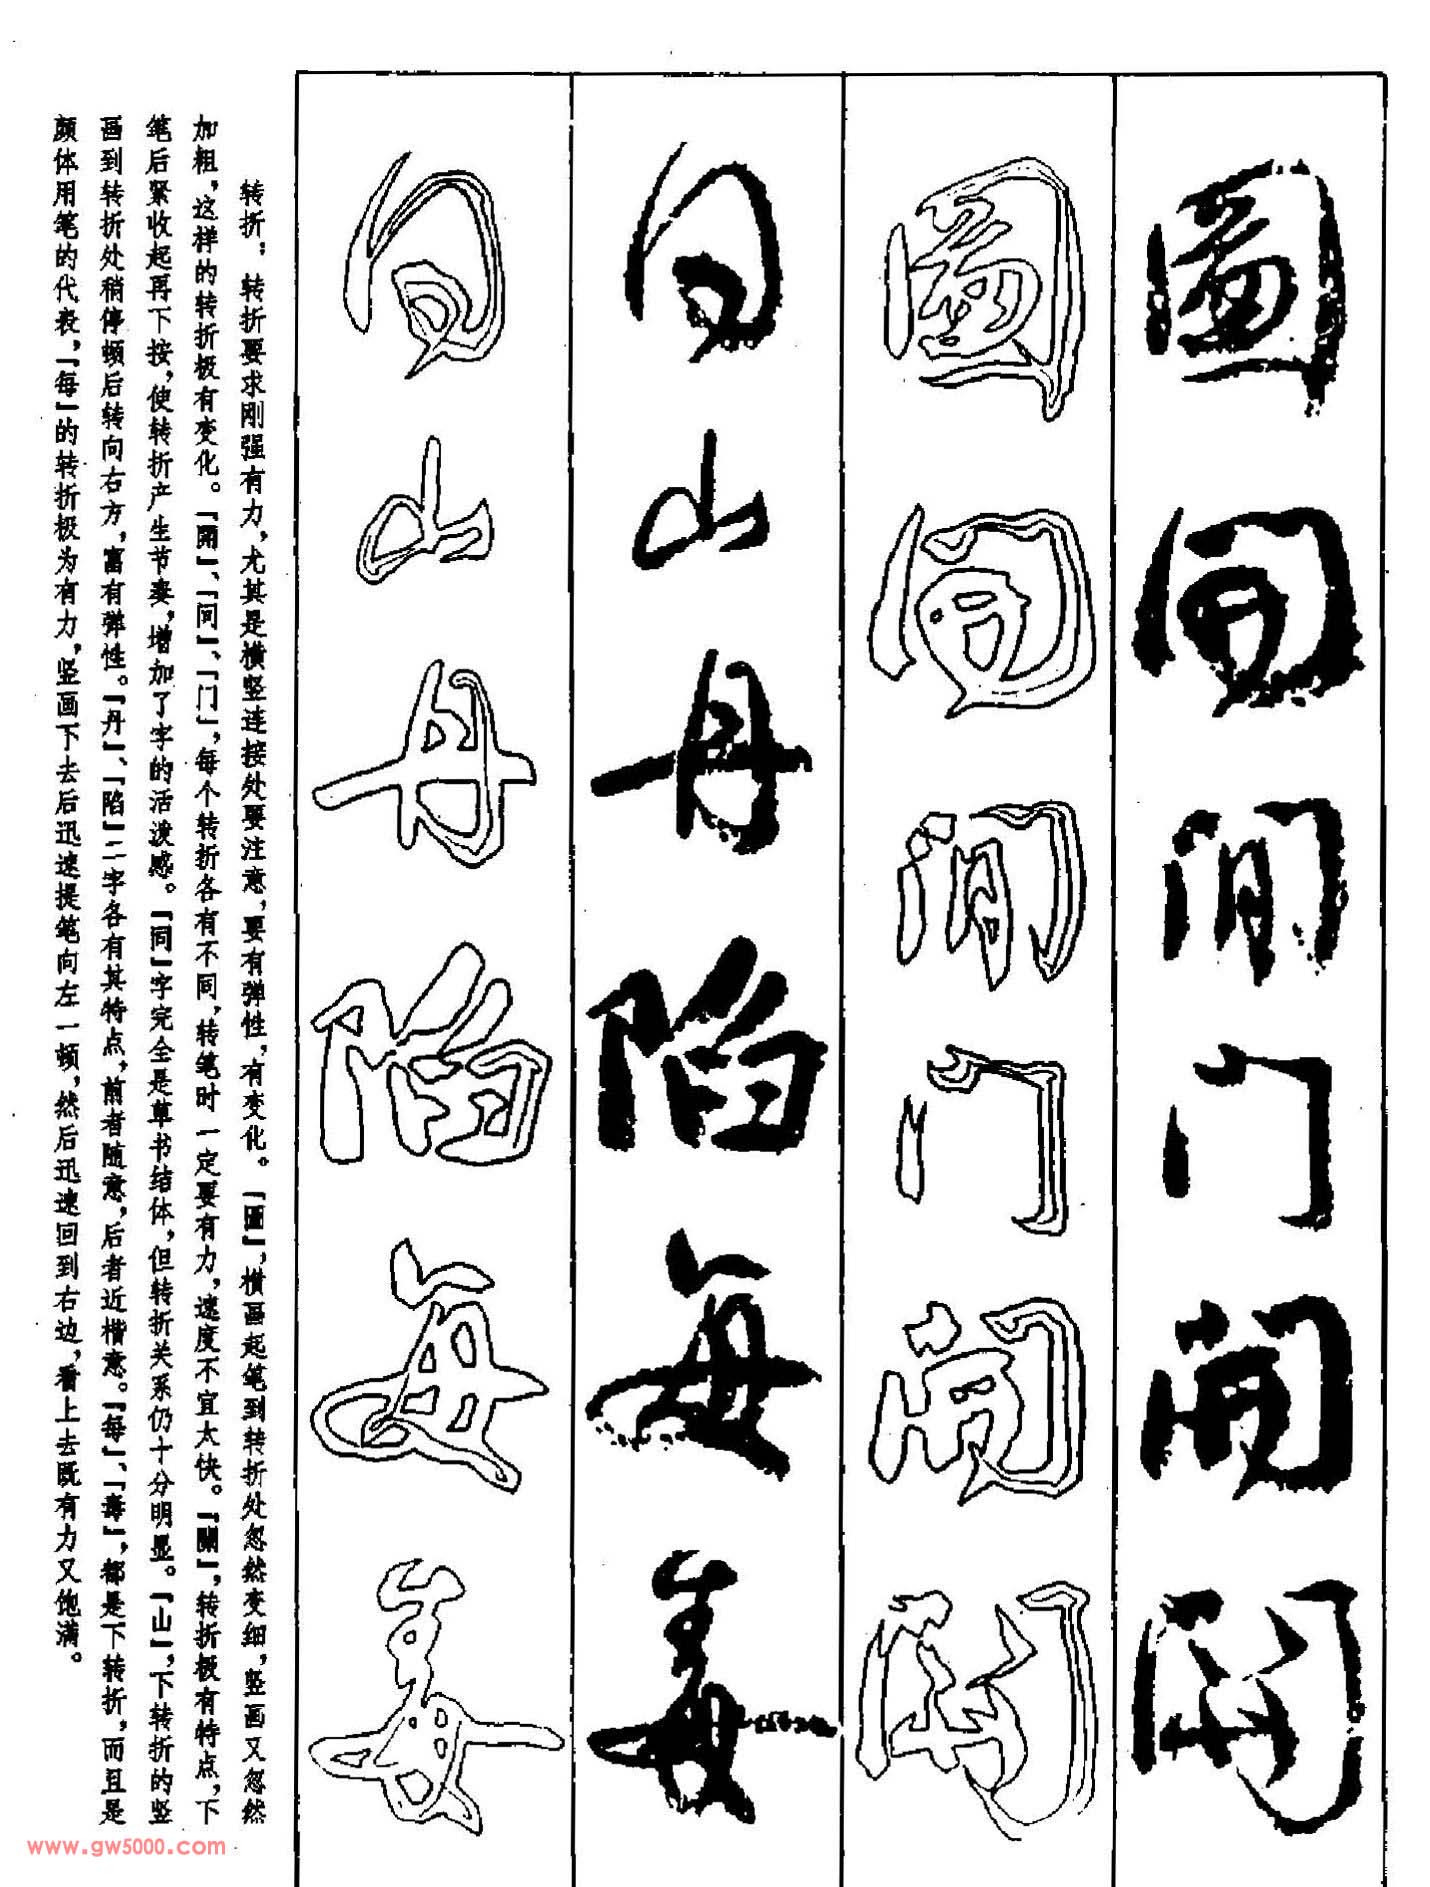 圖
回
間
门
開
關
向
山
丹
陷
每
毒
转折；转折要求刚强有力，尤其是横竖连接处要注意，要有弹性，有变化。「圖」，横画起笔到转折处忽然变细，竖画又忽然
加粗，这样的转折极有变化。「開」、「间」、「门」，每个转折各有不同，转笔时一定要有力，速度不宜太快。「關」，转折极有特点，下
笔后紧收起再下按，使转折产生节奏，增加了字的活泼感。「同」字完全是草书结体，但转折关系仍十分明显。「山」，下转折的竖
画到转折处稍停顿后转向右方，富有弹性。「丹」、「陷」二字各有其特点，前者随意，后者近楷意。「每」、「毒」，都是下转折，而且是
颜体用笔的代表，「每」的转折极为有力，竖画下去后迅速提笔向左一顿，然后迅速回到右边，看上去既有力又饱满。
www.gw5000.com